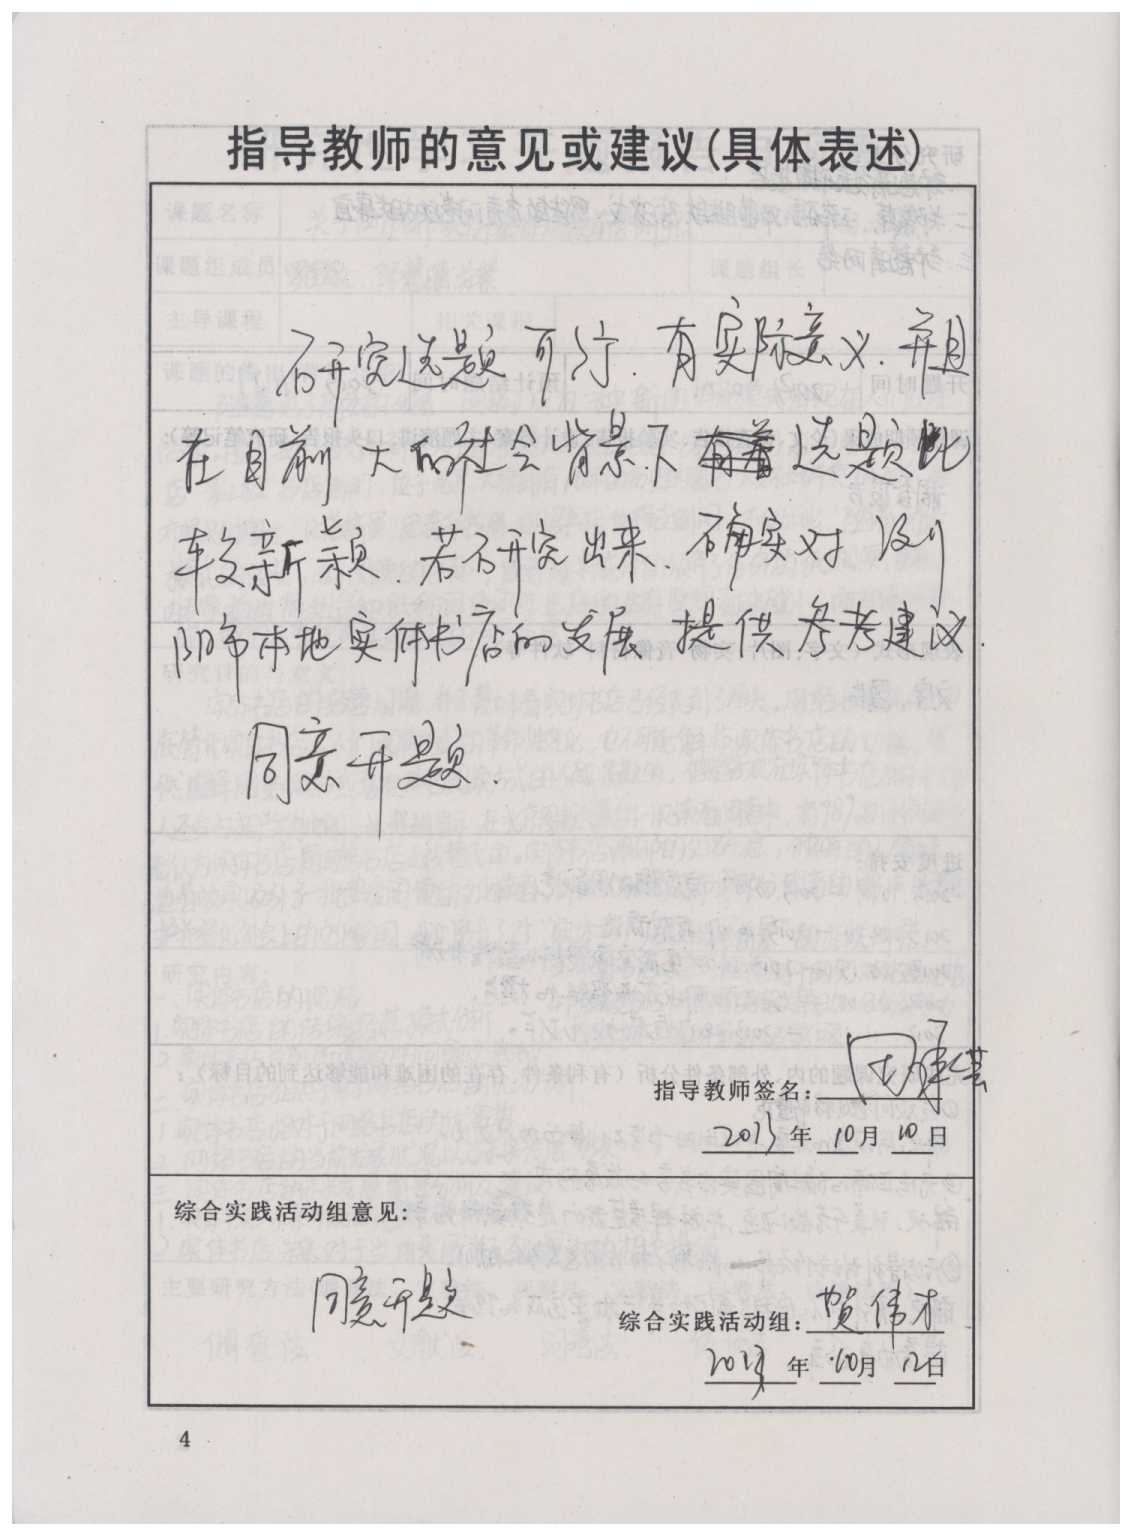 指导教师的意见或建议(具体表述)
研究选题可行.有实际意义.并且
在目前大的社会背景下选题比
较新颖.若研究出来.确实对
阴市本地实体书店的发展提供参考建议.
同意开题.
指导教师签名:
2013年10月10日
综合实践活动组意见:
同意开题
综合实践活动组:贺伟才
2013年10月12日
4